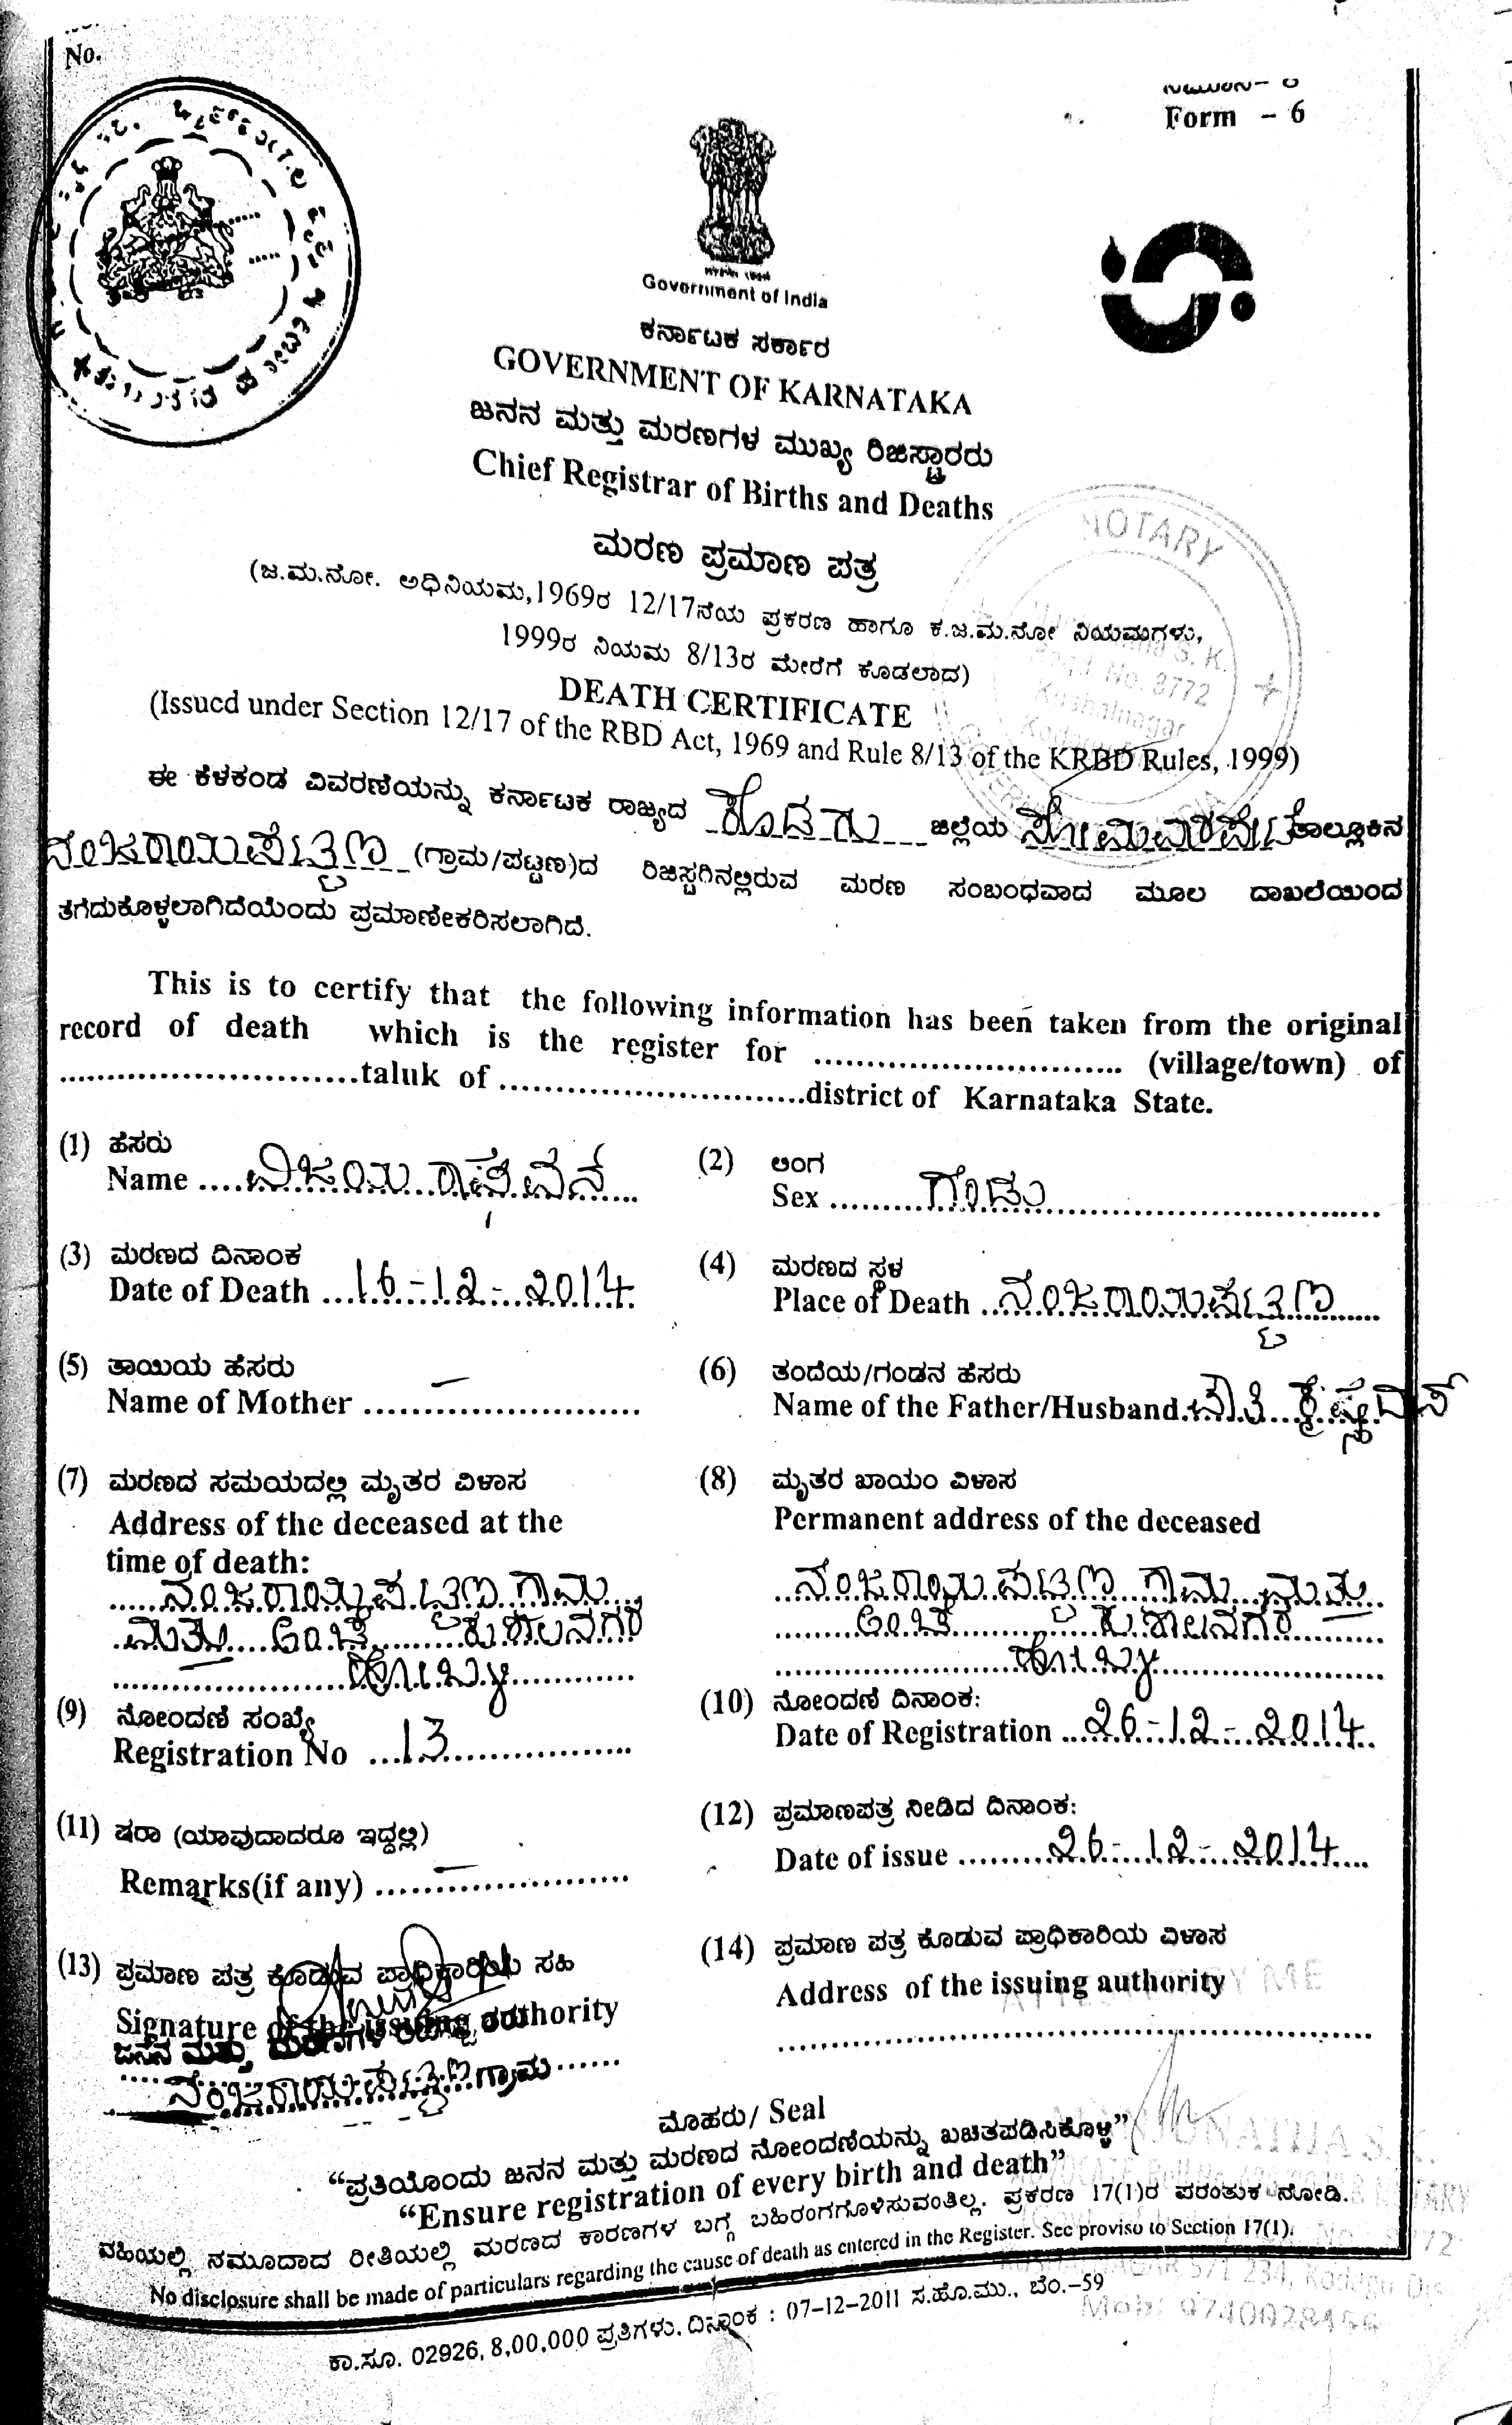 No.
Form - 6
Government of India
ಕರ್ನಾಟಕ ಸರ್ಕಾರ
GOVERNMENT OF KARNATAKA
ಜನನ ಮತ್ತು ಮರಣಗಳ ಮುಖ್ಯ ರಿಜಿಸ್ಟ್ರಾರರು
Chief Registrar of Births and Deaths
NOTARY
ಮರಣ ಪ್ರಮಾಣ ಪತ್ರ
(ಜ.ಮ.ನೋ. ಅಧಿನಿಯಮ,1969ರ 12/17ನೆಯ ಪ್ರಕರಣ ಹಾಗೂ ಕ.ಜ.ಮ.ನೋ ನಿಯಮಗಳು,
1999ರ ನಿಯಮ 8/13ರ ಮೇರೆಗೆ ಕೊಡಲಾದ)
S. K.
No. 8772
Kushalnagar
DEATH CERTIFICATE
(Issued under Section 12/17 of the RBD Act, 1969 and Rule 8/13 of the KRBD Rules, 1999)
ಈ ಕೆಳಕಂಡ ವಿವರಣೆಯನ್ನು ಕರ್ನಾಟಕ ರಾಜ್ಯದ ಕೊಡಗು ಜಿಲ್ಲೆಯ ಸೋಮವಾರಪೇಟೆ ತಾಲ್ಲೂಕಿನ
ನಂಜರಾಯಪಟ್ಟಣ (ಗ್ರಾಮ/ಪಟ್ಟಣ)ದ ರಿಜಿಸ್ಟರಿನಲ್ಲಿರುವ ಮರಣ ಸಂಬಂಧವಾದ ಮೂಲ ದಾಖಲೆಯಿಂದ
ತೆಗೆದುಕೊಳ್ಳಲಾಗಿದೆಯೆಂದು ಪ್ರಮಾಣೀಕರಿಸಲಾಗಿದೆ.
This is to certify that the following information has been taken from the original
record of death which is the register for .............................. (village/town) of
............................taluk of .............................district of Karnataka State.
(1) ಹೆಸರು (2) ಲಿಂಗ
Name .... ವಿಜಯ Sex .......... ಗಂಡು
(3) ಮರಣದ ದಿನಾಂಕ (4) ಮರಣದ ಸ್ಥಳ
Date of Death ...16-12-2014 Place of Death ..ನಂಜರಾಯಪಟ್ಟಣ
(5) ತಾಯಿಯ ಹೆಸರು (6) ತಂದೆಯ/ಗಂಡನ ಹೆಸರು
Name of Mother .......................... – Name of the Father/Husband
(7) ಮರಣದ ಸಮಯದಲ್ಲಿ ಮೃತರ ವಿಳಾಸ (8) ಮೃತರ ಖಾಯಂ ವಿಳಾಸ
Address of the deceased at the Permanent address of the deceased
time of death:
ನಂಜರಾಯಪಟ್ಟಣ ಗ್ರಾಮ ನಂಜರಾಯಪಟ್ಟಣ ಗ್ರಾಮ ಮತ್ತು
ಮತ್ತು ಅಂಚೆ ಕುಶಾಲನಗರ ಅಂಚೆ ಕುಶಾಲನಗರ
ಹೋಬಳಿ ಹೋಬಳಿ
(9) ನೋಂದಣಿ ಸಂಖ್ಯೆ (10) ನೋಂದಣಿ ದಿನಾಂಕ:
Registration No ...13 Date of Registration ..26-12-2014
(11) ಷರಾ (ಯಾವುದಾದರೂ ಇದ್ದಲ್ಲಿ) (12) ಪ್ರಮಾಣಪತ್ರ ನೀಡಿದ ದಿನಾಂಕ:
Remarks(if any) ........................ – Date of issue .........26-12-2014
(13) ಪ್ರಮಾಣ ಪತ್ರ ಕೊಡುವ ಪ್ರಾಧಿಕಾರಿಯ ಸಹಿ (14) ಪ್ರಮಾಣ ಪತ್ರ ಕೊಡುವ ಪ್ರಾಧಿಕಾರಿಯ ವಿಳಾಸ
Signature of the issuing authority Address of the issuing authority
ಜನನ ಮತ್ತು
ನಂಜರಾಯಪಟ್ಟಣ ಗ್ರಾಮ
ಮೊಹರು/ Seal
“ಪ್ರತಿಯೊಂದು ಜನನ ಮತ್ತು ಮರಣದ ನೋಂದಣಿಯನ್ನು ಖಚಿತಪಡಿಸಿಕೊಳ್ಳಿ”
“Ensure registration of every birth and death”
ವಹಿಯಲ್ಲಿ ನಮೂದಾದ ರೀತಿಯಲ್ಲಿ ಮರಣದ ಕಾರಣಗಳ ಬಗ್ಗೆ ಬಹಿರಂಗಗೊಳಿಸುವಂತಿಲ್ಲ. ಪ್ರಕರಣ 17(1)ರ ಪರಂತುಕ ನೋಡಿ.
No disclosure shall be made of particulars regarding the cause of death as entered in the Register. See proviso to Section 17(1).
571 234, Kodagu
ಕಾ.ಸೂ. 02926, 8,00,000 ಪ್ರತಿಗಳು, ದಿನಾಂಕ : 07-12-2011 ಸ.ಹೊ.ಮು., ಬೆಂ.-59